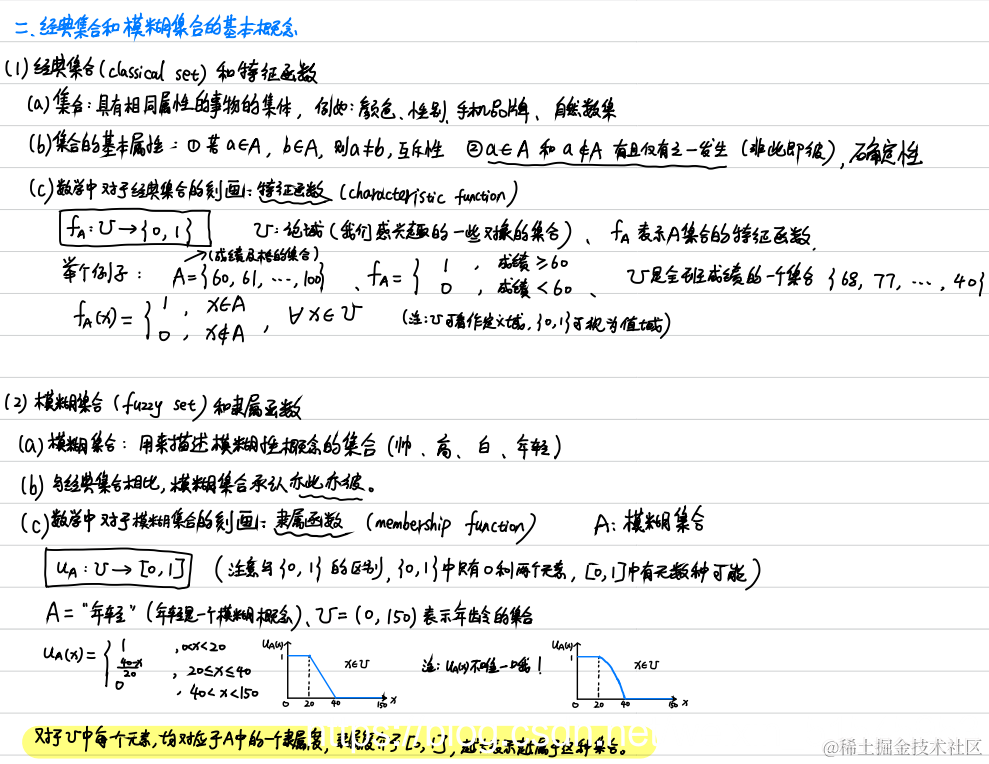 二、经典集合和模糊集合的基本概念
(1) 经典集合(classical set) 和特征函数
(a) 集合:具有相同属性的事物的集体, 例如:颜色、性别、手机品牌、自然数集
(b) 集合的基本属性:① 若a∈A, b∈A, 则a≠b, 互斥性 ②a∈A 和 a∉A 有且仅有之一发生 (非此即彼), 确定性
(c) 数学中对于经典集合的刻画:特征函数 (characteristic function)
f_A: U→{0, 1} U:论域(我们感兴趣的一些对象的集合)、 f_A 表示A集合的特征函数.
(成绩及格的集合)
举个例子: A={60, 61, …, 100}、f_A= { 1, 成绩≥60 0, 成绩<60、 U是全班成绩的一个集合 {68, 77, …, 40}
f_A(x)= { 1, x∈A 0, x∉A, ∀x∈U (注:U可看作定义域, {0,1}可视为值域)
(2) 模糊集合 (fuzzy set) 和隶属函数
(a) 模糊集合: 用来描述模糊性概念的集合 (帅、高、白、年轻)
(b) 与经典集合相比, 模糊集合承认亦此亦彼。
(c) 数学中对于模糊集合的刻画:隶属函数 (membership function) A: 模糊集合
u_A: U→[0, 1] (注意与{0, 1}的区别, {0, 1}中只有0和1两个元素, [0, 1]中有无数种可能)
A= "年轻" (年轻是一个模糊概念)、U= (0, 150) 表示年龄的集合
u_A(x)= { 1, 0<x<20 (40-x)/20, 20≤x≤40 0, 40<x<150
u_A(x) 1 x∈U 0 20 40 150 x
注: u_A(x)不唯一哦!
u_A(x) 1 x∈U 0 20 40 150 x
对于U中每个元素, 均对应于A中的一个隶属度, 隶属度介于[0, 1], 越大表示越属于这种集合。
https://blog.csdn.net
@稀土掘金技术社区